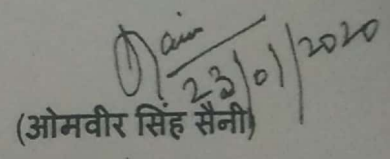 23/01/2020
(ओमवीर सिंह सैनी)